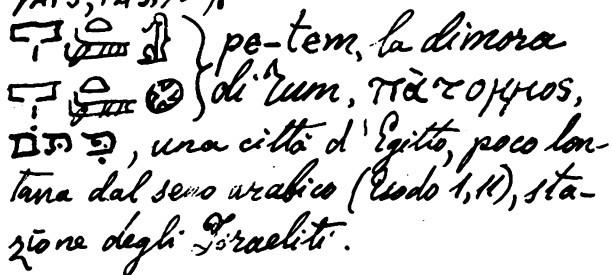 pe-tem, la dimora
di Tum,
פִּתֹם, una città d'Egitto, poco lon-
tana dal seno arabico (Esodo 1,11), sta-
zione degli Israeliti.